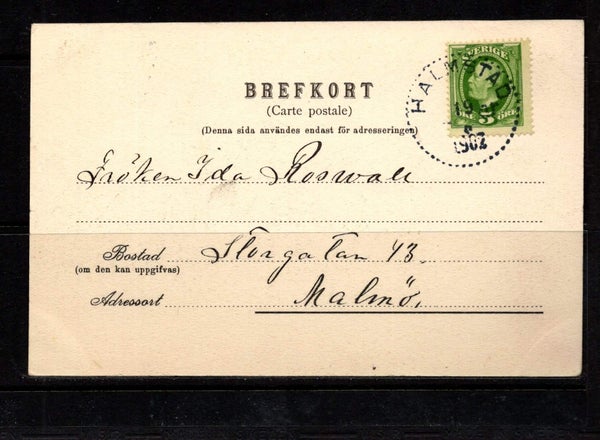 BREFKORT
(Carte postale)
(Denna sida användes endast för adresseringen)
SVERIGE
5 ÖRE
HALMSTAD
1902
Fröken Ida Roswall
Bostad Storgatan 43.
(om den kan uppgifvas)
Adressort Malmö.